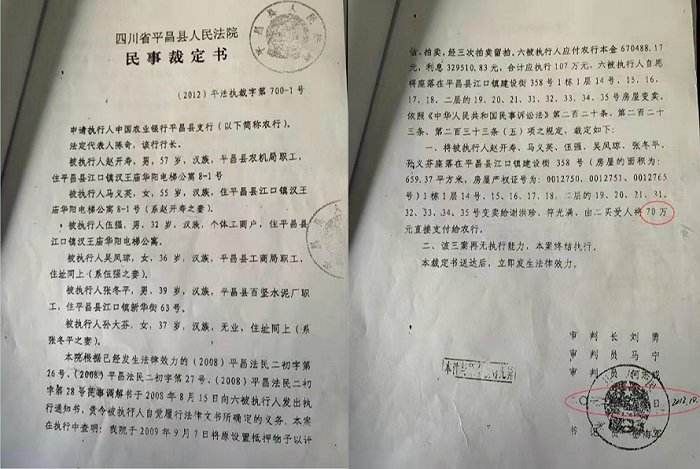 四川省平昌县人民法院
民事裁定书
(2012)平法执裁字第700-1号
申请执行人中国农业银行平昌县支行(以下简称农行)。
法定代表人陈奇,该行行长。
被执行人赵开寿,男,57岁,汉族,平昌县农机局职工,
住平昌县江口镇汉王庙华阳电梯公寓8-1号
被执行人马义英,女,55岁,汉族,住平昌县江口镇汉王
庙华阳电梯公寓8-1号(系赵开寿之妻)。
被执行人伍强,男,32岁,汉族,个体工商户,住平昌县
江口镇汉王庙华阳电梯公寓。
被执行人吴凤琼,女,36岁,汉族,平昌县工商局职工,
住址同上(系伍强之妻)。
被执行人张冬平,男,39岁,汉族,平昌县百坚水泥厂职
工,住平昌县江口镇新华街63号。
被执行人孙大芬,女,37岁,汉族,无业,住址同上(系
张冬平之妻)。
本院根据已经发生法律效力的(2008)平昌法民二初字第
26号、(2008)平昌法民二初字第27号、(2008)平昌法民二初
字第28号民事调解书于2008年8月15日向六被执行人发出执
行通知书,责令被执行人自觉履行法律文书所确定的义务。本案
在执行中查明:我院于2009年9月7日将原设置抵押物予以计
估、拍卖,经三次拍卖留拍。六被执行人应付农行本金670488.17
元,利息329510.83元,合计应执行107万元。六被执行人自愿
将座落在平昌县江口镇建设街358号1栋1层14号、15、16、
17、18、二层的19、20、21、31、32、33、34、35号房屋变卖。
依照《中华人民共和国民事诉讼法》第二百二十条、第二百二十
三条、第二百三十三条(五)项之规定,裁定如下:
一、将被执行人赵开寿、马义英、伍强、吴凤琼、张冬平、
孙义芬座落在平昌县江口镇建设街358号(房屋的面积为:
659.37平方米,房屋产权证号为:0012750、0012751、0012765
号)1栋1层14号、15、16、17、18、二层的19、20、21、31、
32、33、34、35号变卖给谢洪珍、符光满,由二买受人将70万
元直接支付给农行。
二、该三案再无执行能力,本案终结执行。
本裁定书送达后,立即发生法律效力。
审判长 刘勇
审判员 马宁
审判员
日
2012.10.
书记员